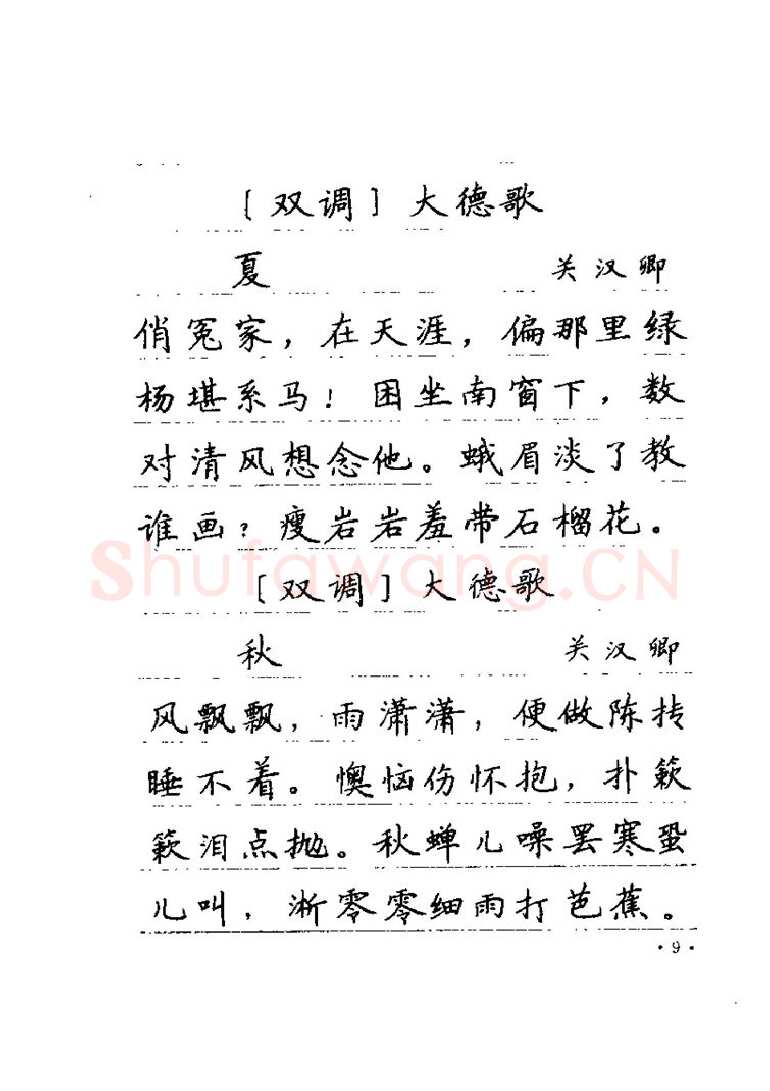 [双调] 大德歌
夏 关汉卿
俏冤家，在天涯，偏那里绿
杨堪系马！困坐南窗下，数
对清风想念他。蛾眉淡了教
谁画？瘦岩岩羞带石榴花。
Shufawang.CN
[双调] 大德歌
秋 关汉卿
风飘飘，雨潇潇，便做陈抟
睡不着。懊恼伤怀抱，扑簌
簌泪点抛。秋蝉儿噪罢寒蛩
儿叫，淅零零细雨打芭蕉。
·9·